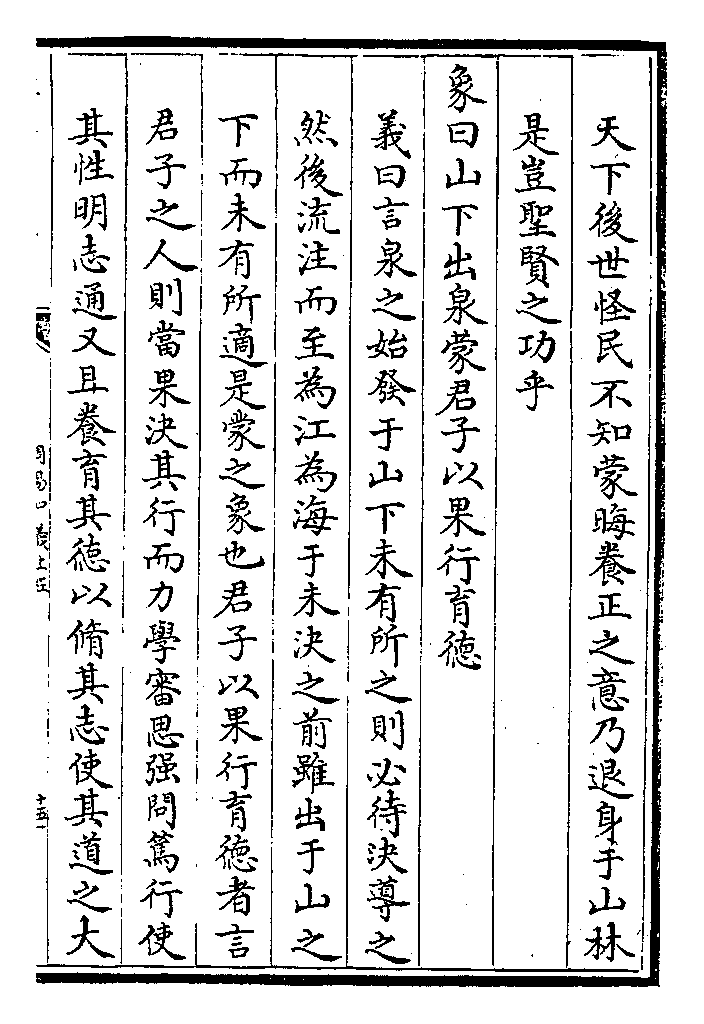 天下後世怪民不知蒙晦養正之意乃退身于山林
是豈聖賢之功乎
象曰山下出泉蒙君子以果行育德
義曰言泉之始發于山下未有所之則必待決導之
然後流注而至為江為海于未決之前雖出于山之
下而未有所適是蒙之象也君子以果行育德者言
君子之人則當果決其行而力學審思强問篤行使
其性明志通又且養育其德以脩其志使其道之大
周易口義上經
十五